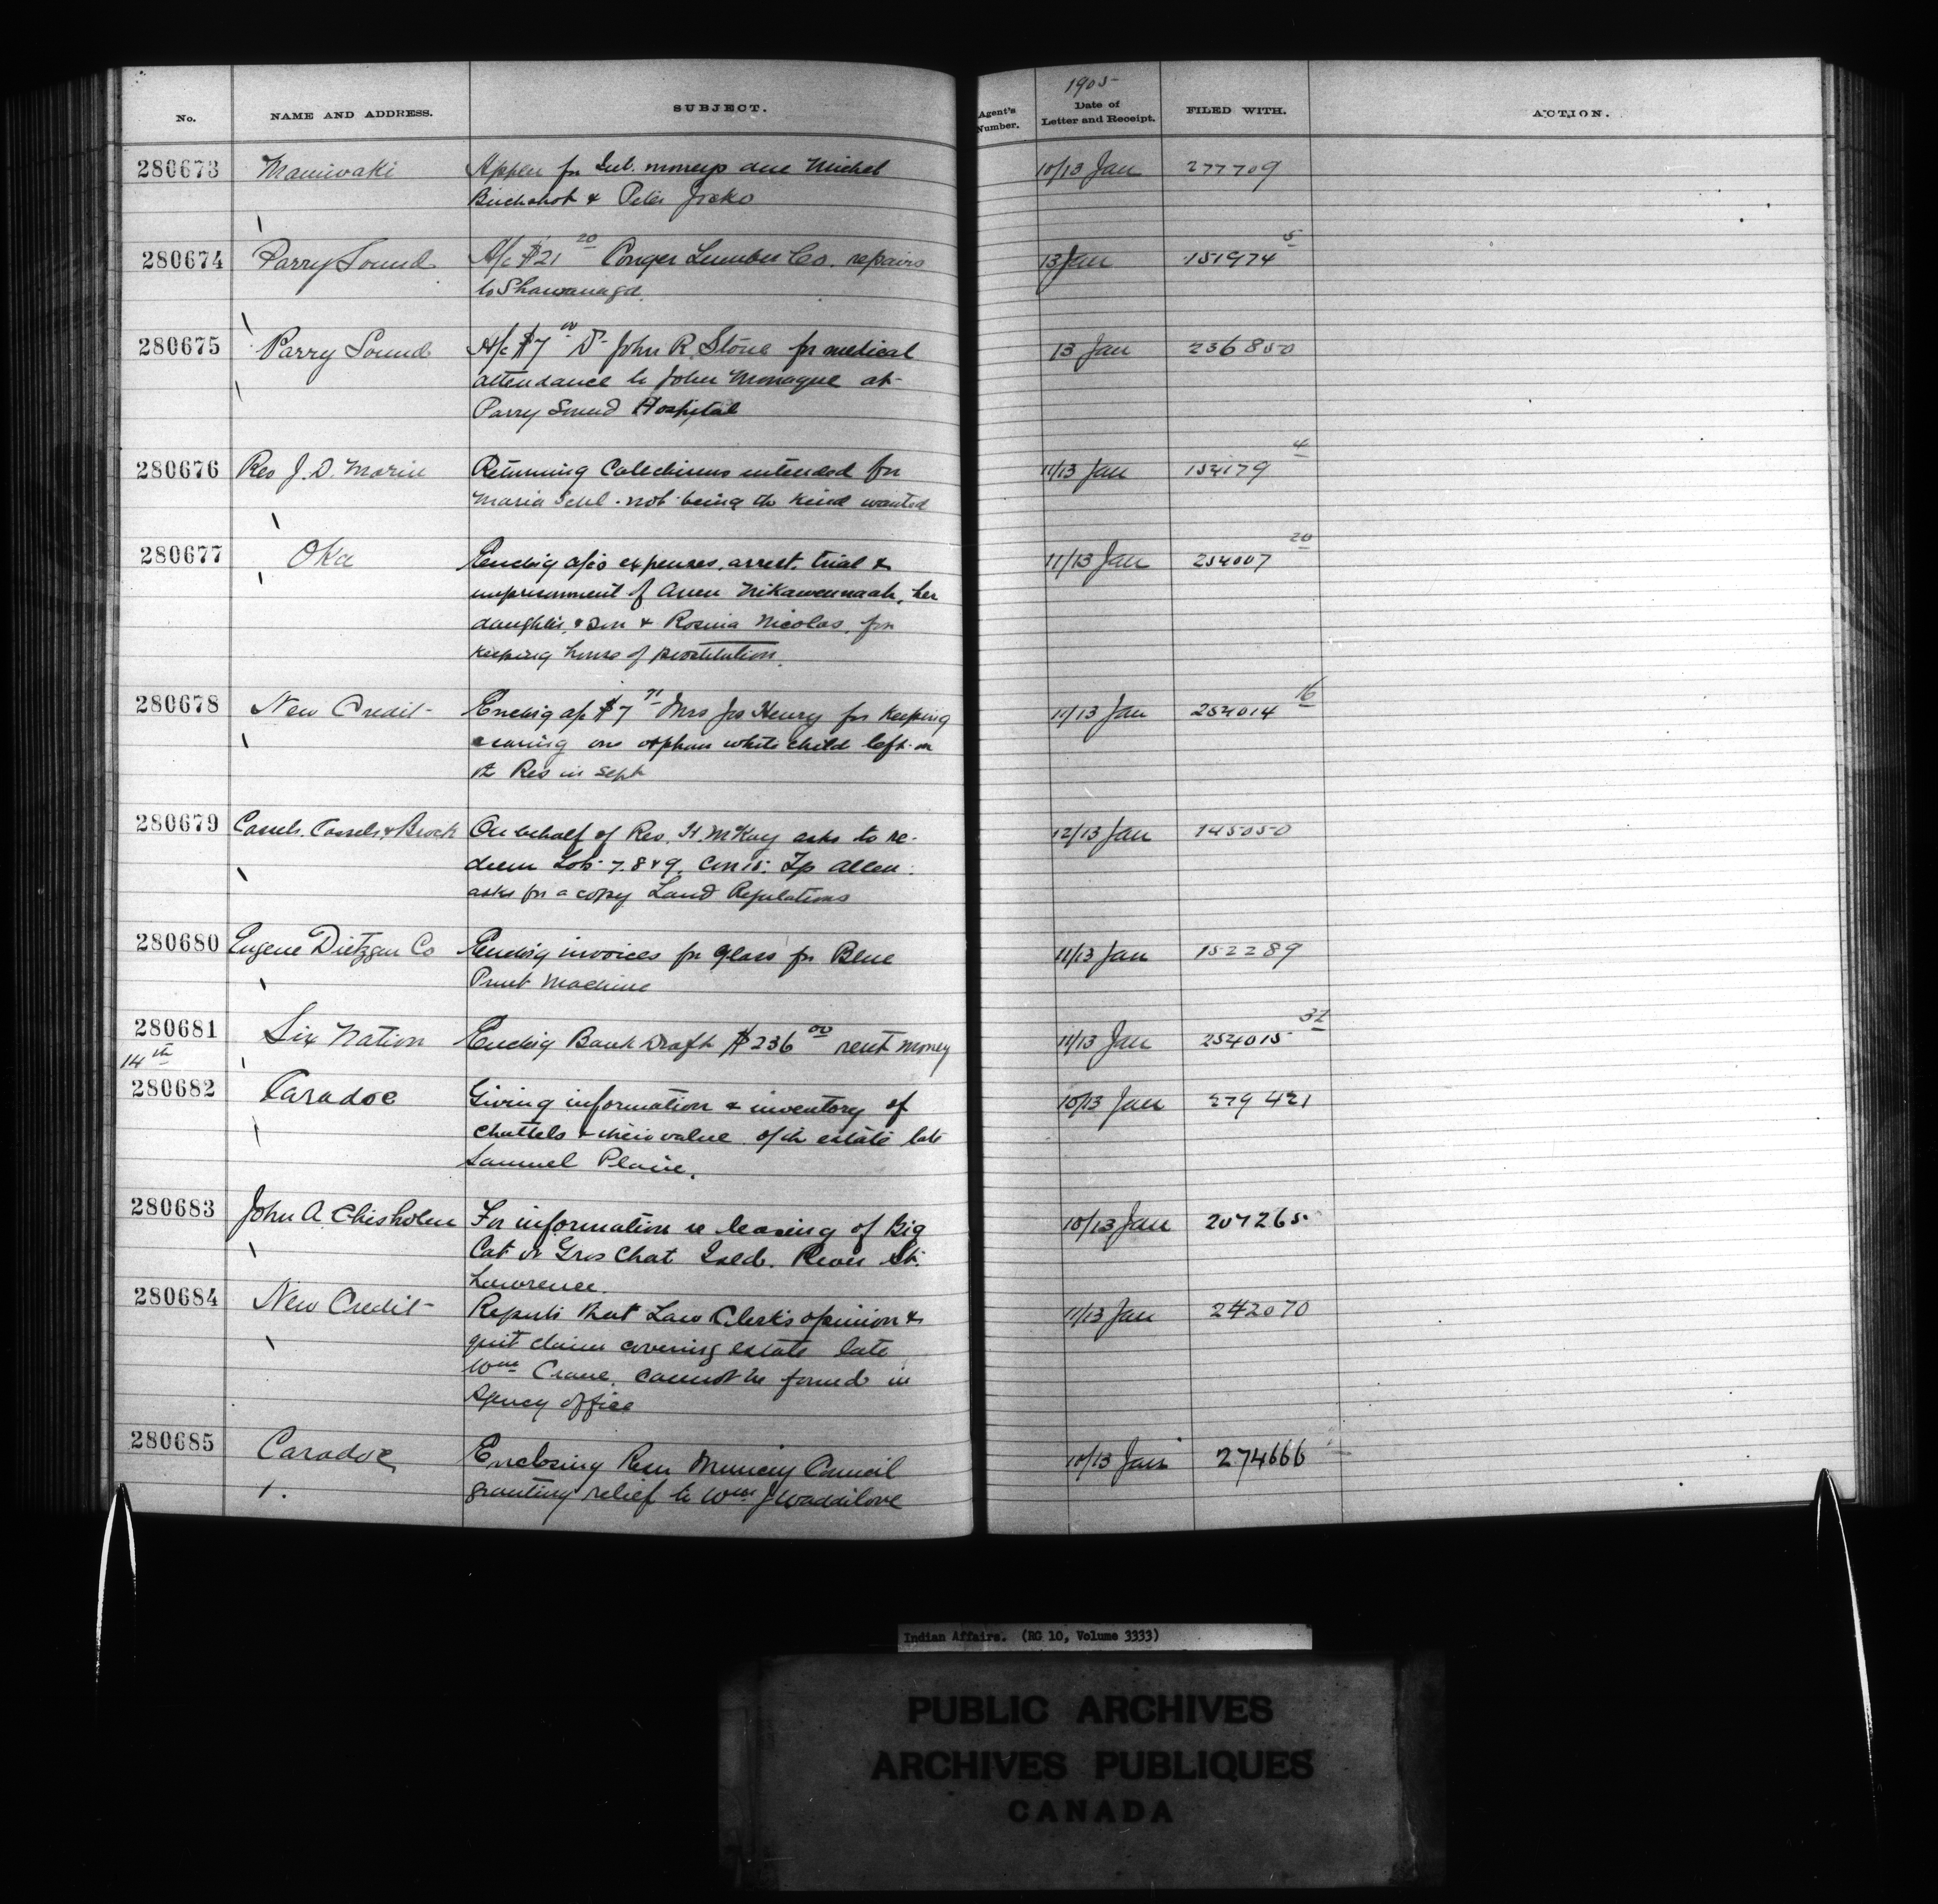 1905
No. NAME AND ADDRESS. SUBJECT. Agent's Number. Date of Letter and Receipt. FILED WITH. ACTION.
280673 Maniwaki Appln for Int. moneys due Michel 10/13 Jan 277709
Buckshot & Peter Jocko
280674 Parry Sound A/c $21 20 Conger Lumber Co. repairs 13 Jan 151974 5
to Shawanaga
280675 Parry Sound A/c $7 00 Dr John R. Stone for medical 13 Jan 236850
attendance to John Monague at
Parry Sound Hospital
280676 Rev J. D. Morin Returning Catechisms intended for 11/13 Jan 154179 4
Maria Schl. not being the kind wanted
280677 Oka Encl'g a/cs expenses, arrest, trial & 11/13 Jan 254007 20
imprisonment of Annen Nikawennaah, her
daughter, & son & Rosina Nicolas, for
keeping house of prostitution.
280678 New Credit Enclsg a/c $7 71 Mrs Jos Henry for keeping 11/13 Jan 254014 16
& caring one orphan white child left on
the Res in Sept
280679 Cassels, Cassels & Brock On behalf of Rev. H. McKay asks to re- 12/13 Jan 145050
deem Lots 7. 8 & 9. Con 15. Tp Allen:
asks for a copy Land Regulations
280680 Eugene Dietzgen Co Enclsg invoices for glass for Blue 11/13 Jan 152289
Print Machine
280681 Six Nation Enclsg Bank Draft $236 00 rent money 11/13 Jan 254015 32
14th
280682 Caradoc Giving information & inventory of 10/13 Jan 279421
chattels & their value of the estate late
Samuel Plaine.
280683 John A. Chisholm For information re leasing of Big 10/13 Jan 207265
Cat or Gros Chat Isld. River St.
Lawrence.
280684 New Credit Reports that Law Clerk's opinion & 11/13 Jan 242070
quit claim covering estate late
Wm Crane, cannot be found in
Agency office
280685 Caradoc Enclosing Resn Muncey Council 10/13 Jan 274666
granting relief to Wm J Waddilove
Indian Affairs. (RG 10, Volume 3333)
PUBLIC ARCHIVES
ARCHIVES PUBLIQUES
CANADA